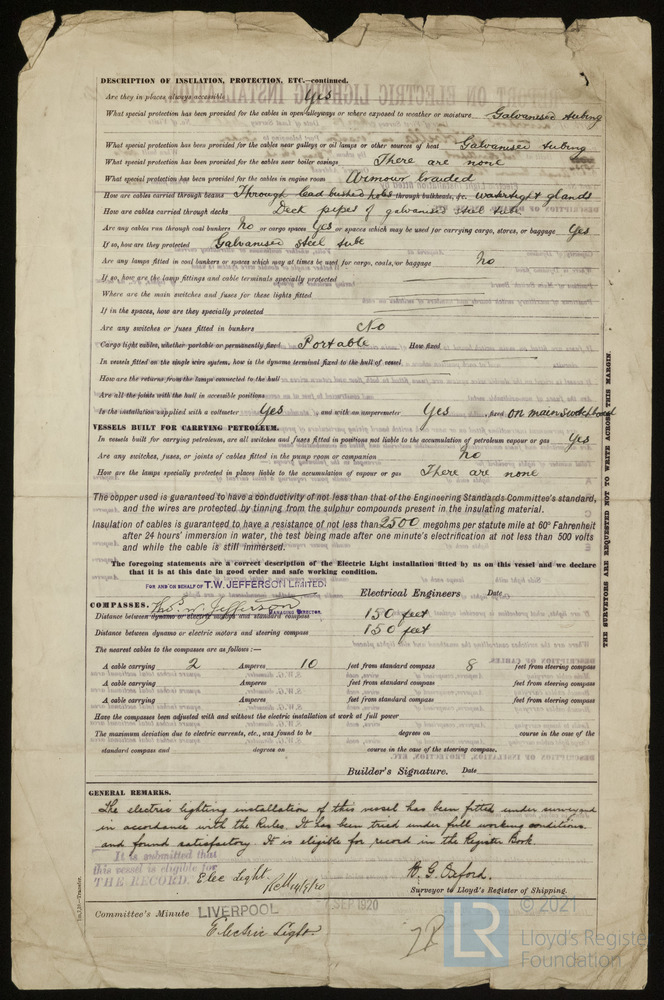 DESCRIPTION OF INSULATION, PROTECTION, ETC.—continued.
Are they in places always accessible Yes
What special protection has been provided for the cables in open alleyways or where exposed to weather or moisture Galvanised tubing
What special protection has been provided for the cables near galleys or oil lamps or other sources of heat Galvanised tubing
What special protection has been provided for the cables near boiler casings There are none
What special protection has been provided for the cables in engine room Armour braided
How are cables carried through beams Through lead bushed holes through bulkheads, &c. watertight glands
How are cables carried through decks Deck pipes of galvanised steel tube
Are any cables run through coal bunkers No or cargo spaces Yes or spaces which may be used for carrying cargo, stores, or baggage Yes
If so, how are they protected Galvanised steel tube
Are any lamps fitted in coal bunkers or spaces which may at times be used for cargo, coals, or baggage No
If so, how are the lamp fittings and cable terminals specially protected
Where are the main switches and fuses for these lights fitted
If in the spaces, how are they specially protected
Are any switches or fuses fitted in bunkers No
Cargo light cables, whether portable or permanently fixed Portable How fixed
In vessels fitted on the single wire system, how is the dynamo terminal fixed to the hull of vessel
How are the returns from the lamps connected to the hull
Are all the joints with the hull in accessible positions
Is the installation supplied with a voltmeter Yes, and with an amperemeter Yes, fixed on main switchboard
VESSELS BUILT FOR CARRYING PETROLEUM.
In vessels built for carrying petroleum, are all switches and fuses fitted in positions not liable to the accumulation of petroleum vapour or gas Yes
Are any switches, fuses, or joints of cables fitted in the pump room or companion No
How are the lamps specially protected in places liable to the accumulation of vapour or gas There are none
The copper used is guaranteed to have a conductivity of not less than that of the Engineering Standards Committee's standard,
and the wires are protected by tinning from the sulphur compounds present in the insulating material.
Insulation of cables is guaranteed to have a resistance of not less than 2500 megohms per statute mile at 60° Fahrenheit
after 24 hours' immersion in water, the test being made after one minute's electrification at not less than 500 volts
and while the cable is still immersed.
The foregoing statements are a correct description of the Electric Light installation fitted by us on this vessel and we declare
that it is at this date in good order and safe working condition.
FOR AND ON BEHALF OF T. W. JEFFERSON LIMITED
Electrical Engineers Date
COMPASSES. Thos. W. Jefferson
MANAGING DIRECTOR.
Distance between dynamo or electric motors and standard compass 150 feet
Distance between dynamo or electric motors and steering compass 150 feet
The nearest cables to the compasses are as follows:—
A cable carrying 2 Amperes 10 feet from standard compass 8 feet from steering compass
A cable carrying Amperes feet from standard compass feet from steering compass
A cable carrying Amperes feet from standard compass feet from steering compass
Have the compasses been adjusted with and without the electric installation at work at full power
The maximum deviation due to electric currents, etc., was found to be degrees on course in the case of the
standard compass and degrees on course in the case of the steering compass.
Builder's Signature. Date
GENERAL REMARKS.
The electric lighting installation of this vessel has been fitted under survey and
in accordance with the Rules. It has been tried under full working conditions
and found satisfactory. It is eligible for record in the Register Book.
It is submitted that
this vessel is eligible for
THE RECORD. Elec Light
W. G. Oxford.
Surveyor to Lloyd's Register of Shipping.
Committee's Minute LIVERPOOL SEP 1920
Electric Light
THE SURVEYORS ARE REQUESTED NOT TO WRITE ACROSS THIS MARGIN.
LR
© 2021
Lloyd's Register
Foundation